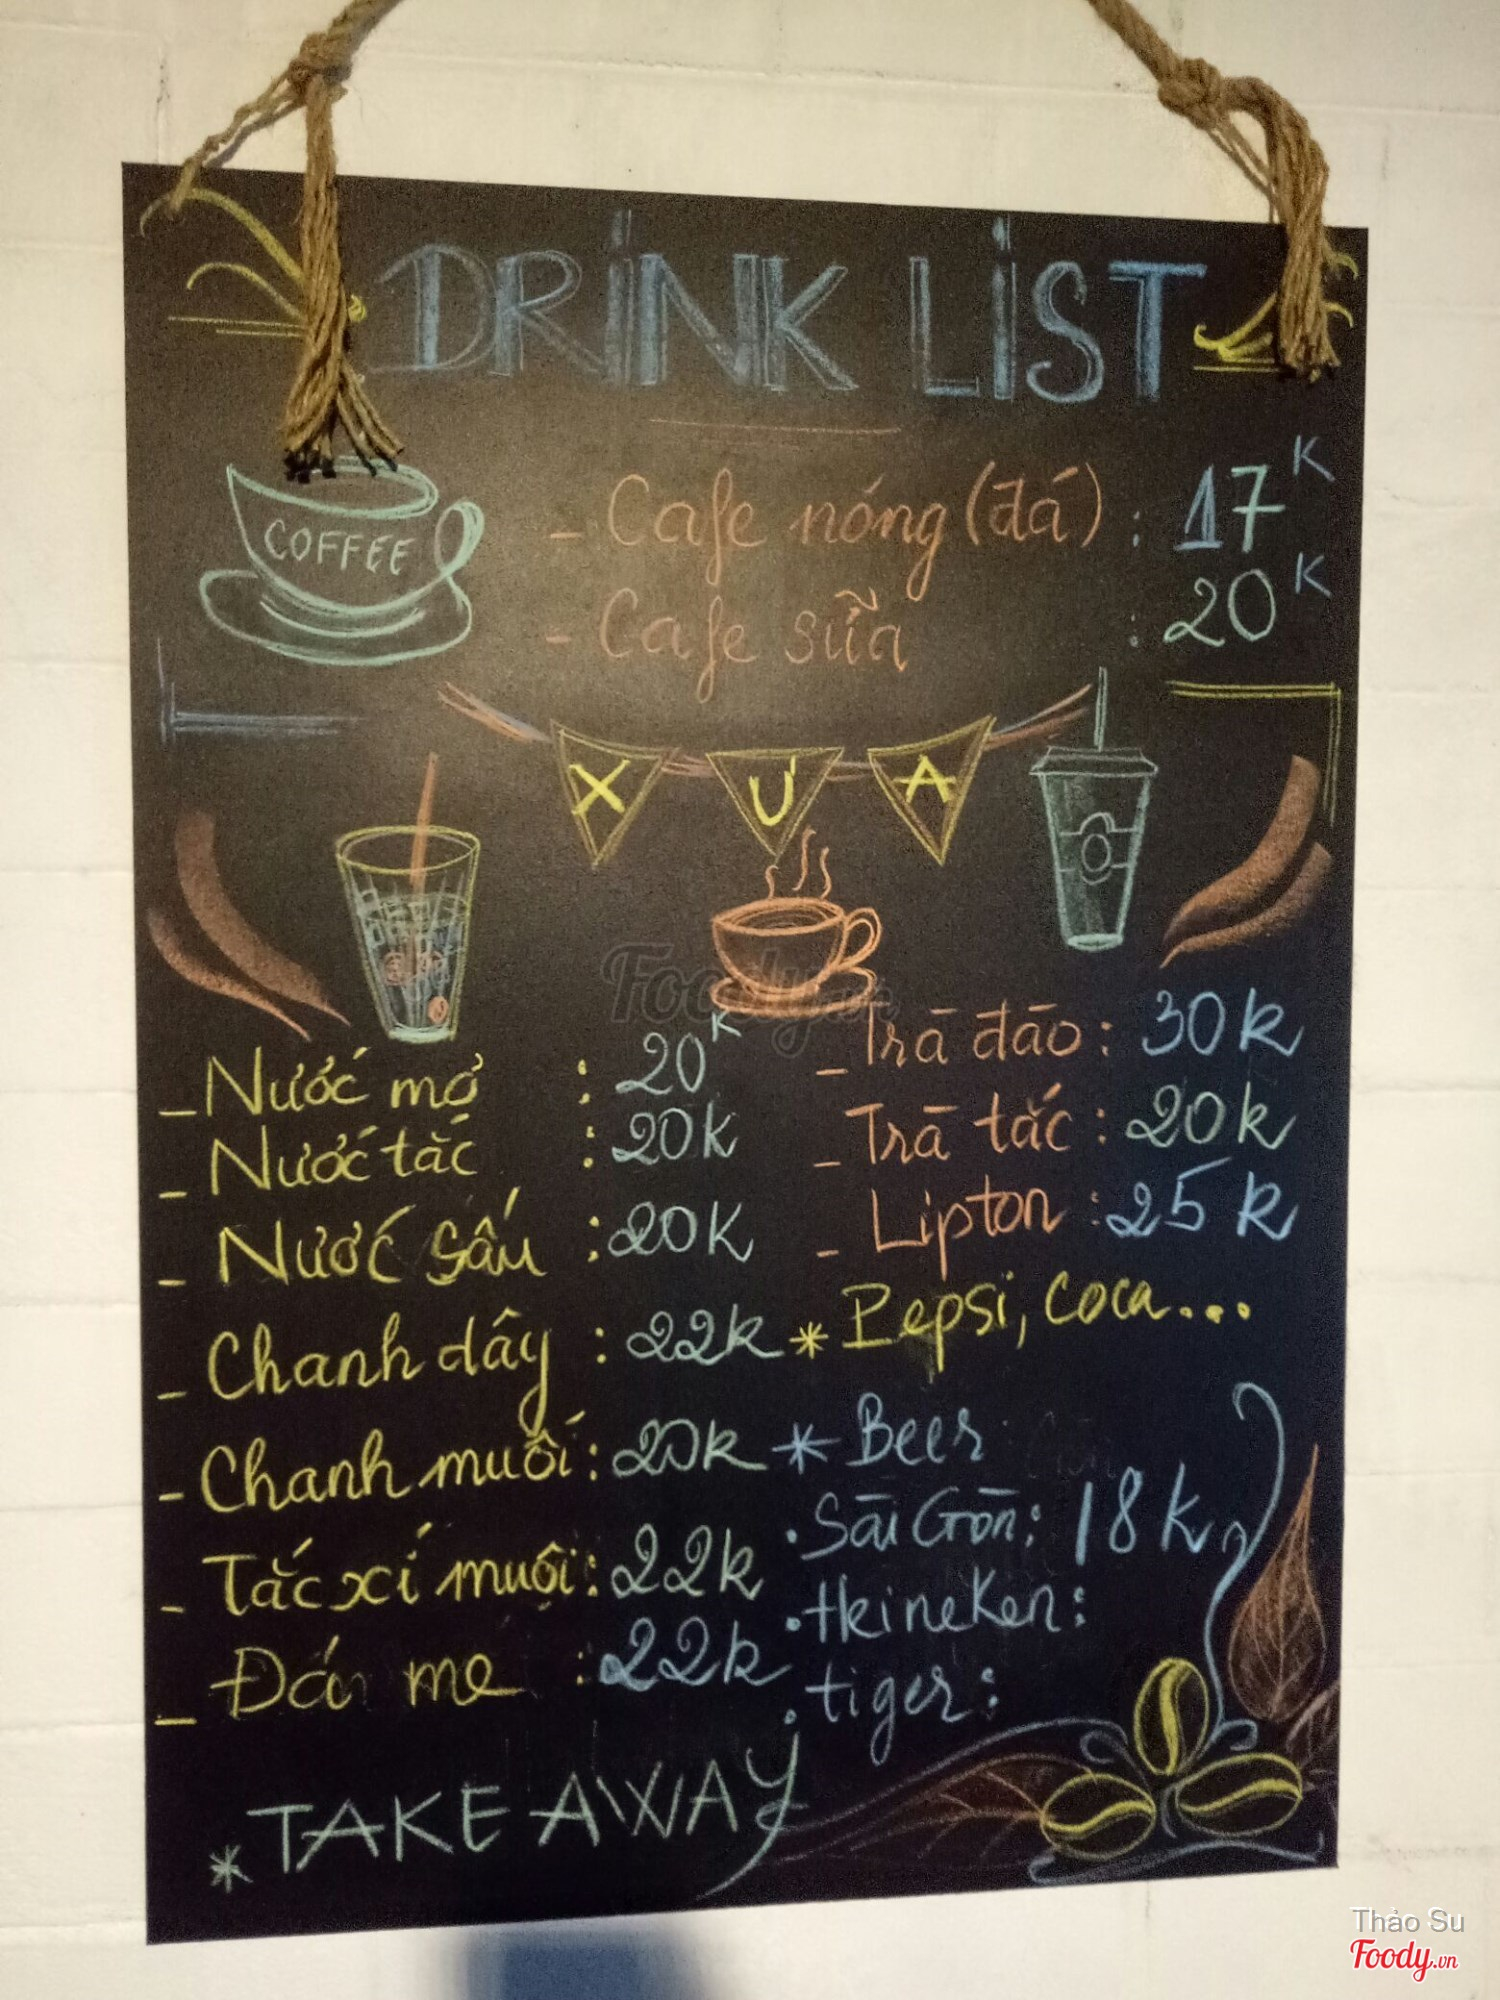 DRINK LIST
COFFEE
- Cafe nóng (đá) : 17K
- Cafe sữa : 20K
XƯA
- Nước mơ : 20K
- Nước tắc : 20K
- Nước sấu : 20K
- Chanh dây : 22k
- Chanh muối : 20k
- Tắc xí muội : 22k
- Đá me : 22k
- Trà đào : 30k
- Trà tắc : 20k
- Lipton : 25k
* Pepsi, coca...
* Beer
. Sài Gòn : 18k
. Heineken :
. tiger :
* TAKE AWAY
Foody.vn
Thảo Su
Foody.vn